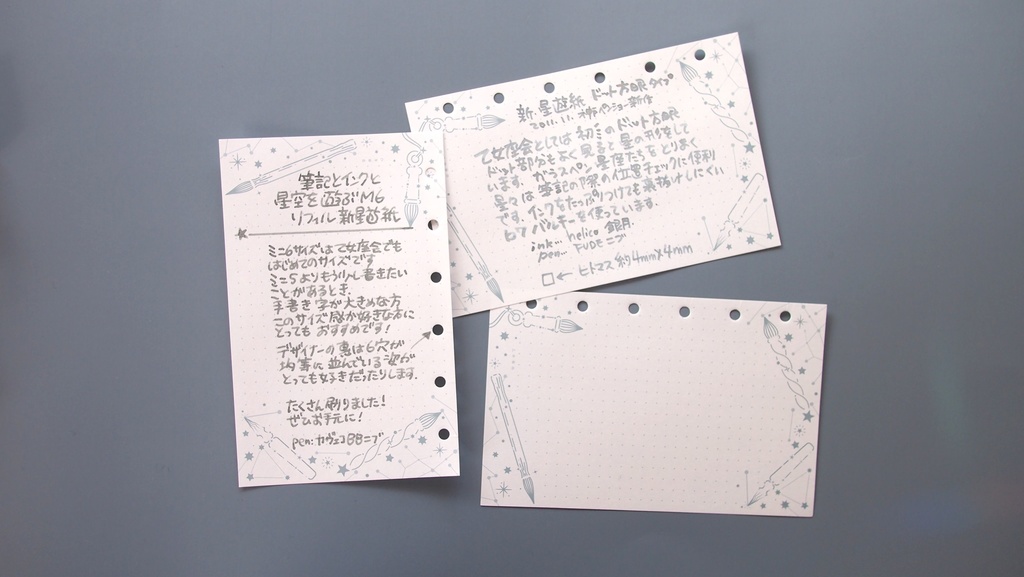 筆記とインクと
星空を遊ぶM6
リフィル新星遊紙
ミニ6サイズは乙女座会でも
はじめてのサイズです
ミニ5よりもう少し書きたい
ことがあるとき、
手書き字が大きめな方
このサイズ感が好きな方に
とってもおすすめです!
デザイナーの裏は6穴が
均等に並んでいる姿が
とっても好きだったりします.
たくさん刷りました!
ぜひお手元に!
pen: カヴェコBBニブ
新・星遊紙 ドット方眼タイプ
乙女座会としては初のドット方眼
ドット部分もよく見ると星の形をして
います。ガラスペン星座たちをとりまく
星々は筆記の際の位置チェックに便利
です。インクをたっぷりつけても裏抜けしにくい
バルキーを使っています。
ink… helico 銀月
pen… FUDEニブ
□← ヒトマス約4mm×4mm